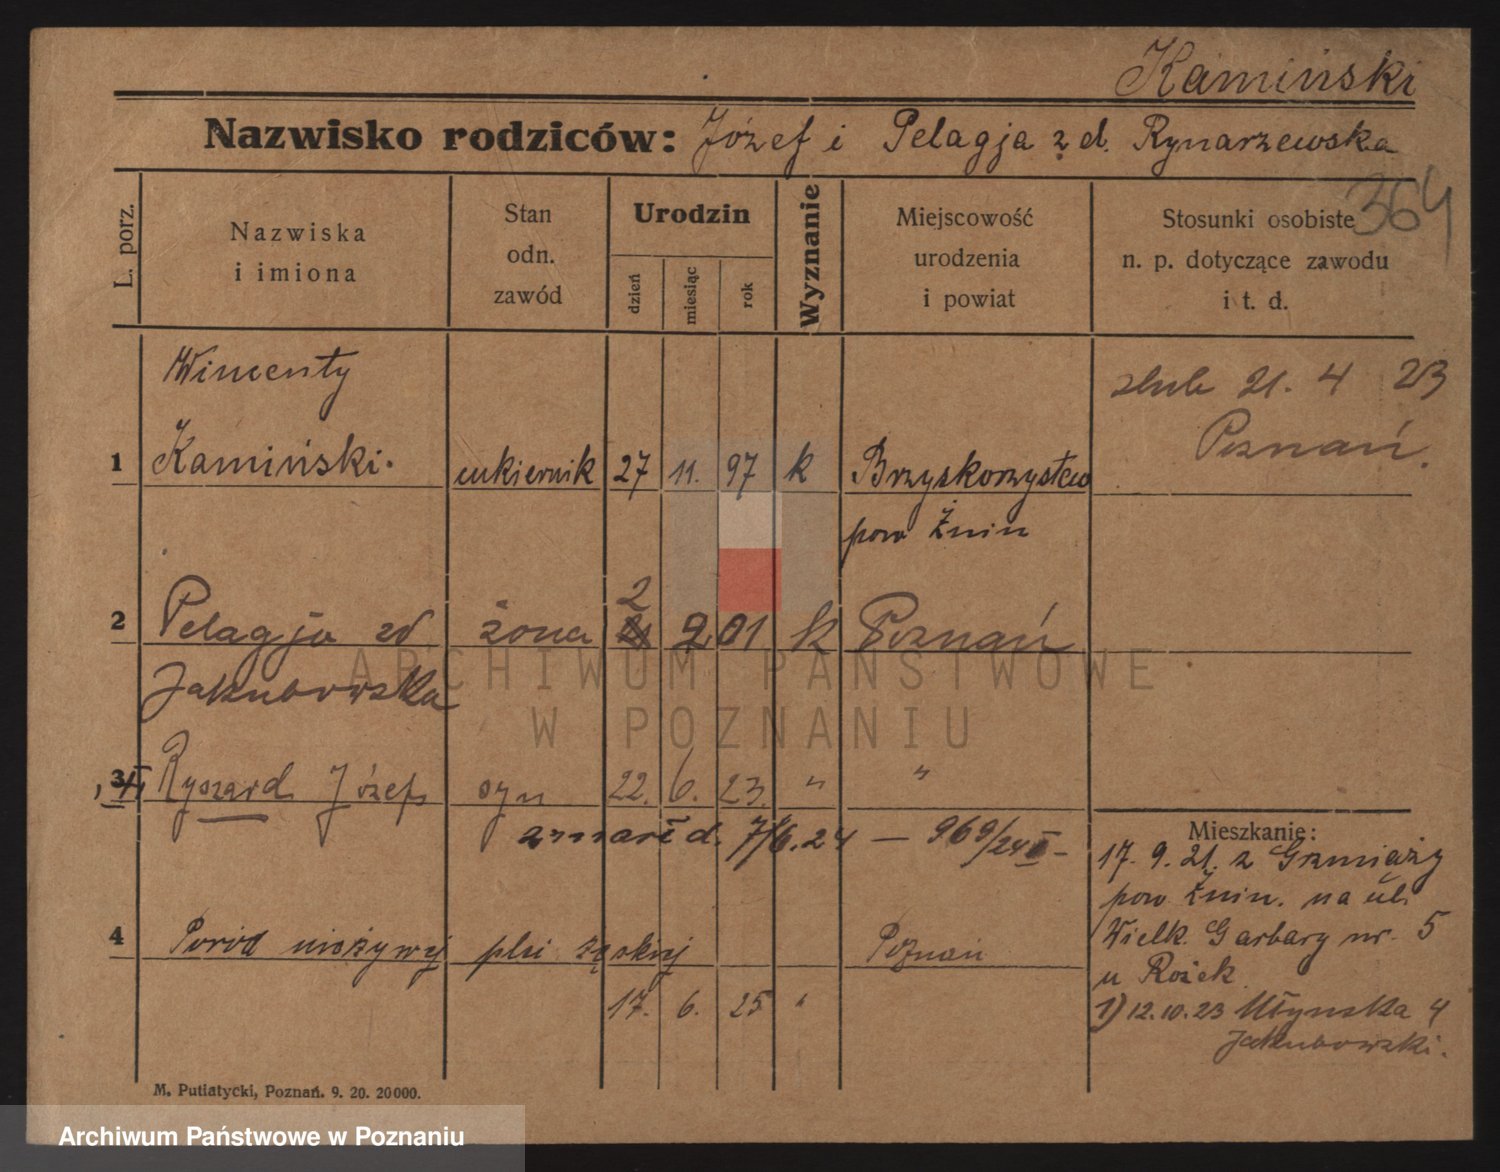 Kamiński
Nazwisko rodziców: Józef i Pelagja z d. Rynarzewska
364
L. porz.
Nazwiska
i imiona
Stan
odn.
zawód
Urodzin
dzień
miesiąc
rok
Wyznanie
Miejscowość
urodzenia
i powiat
Stosunki osobiste
n. p. dotyczące zawodu
i t. d.
Wincenty
ślub 21. 4 23
Poznań.
1 Kamiński. cukiernik 27 11. 97 k Brzyskorzystew
pow Żnin
2
2 Pelagja zd żona 2 01 k Poznań
Jakubowska
3 Ryszard Józef syn 22. 6. 23. " "
zmarł d. 7/6.24 — 969/24 II –
Mieszkanie:
17. 9. 21. z Grzmiąży
pow Żnin. na ul.
Wielk. Garbary nr. 5
u Rożek
1) 12.10.23 Młyńska 4
Jakubowski.
4 Poród nieżywej płci żeńskiej Poznań
17. 6. 25 "
M. Putiatycki, Poznań. 9. 20. 20000.
ARCHIWUM PAŃSTWOWE
W POZNANIU
Archiwum Państwowe w Poznaniu